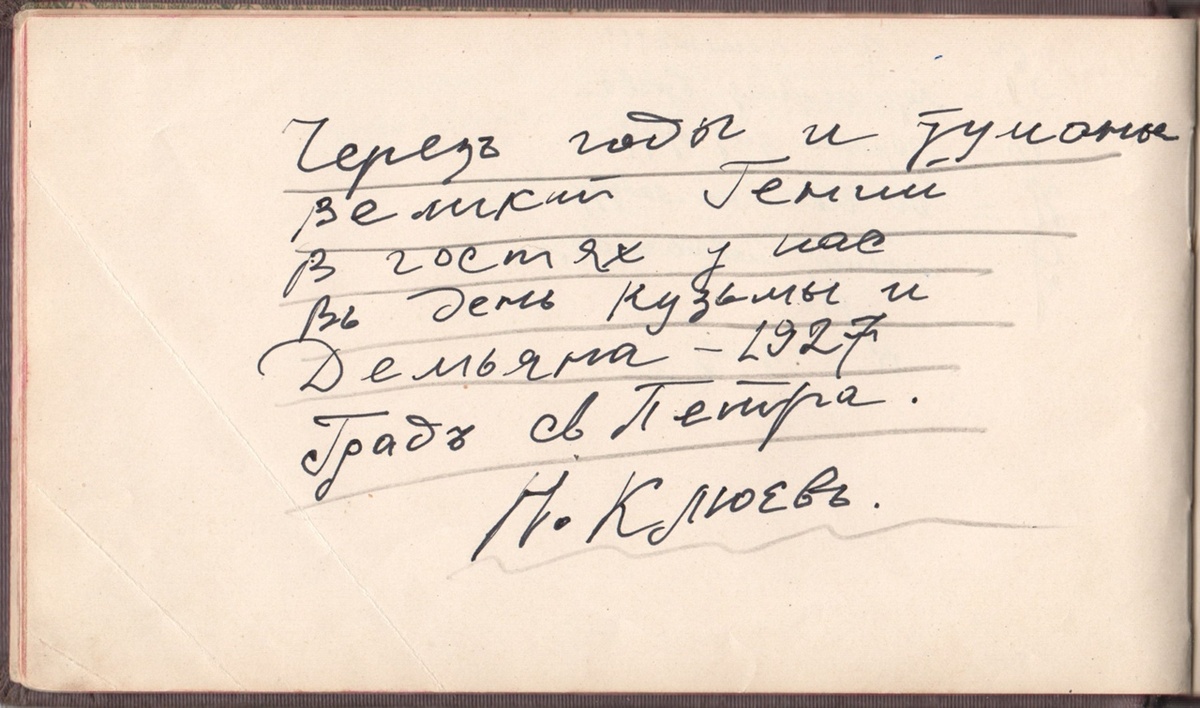 Черезъ годы и туманы
Великий Гений
В гостях у нас
Въ день Кузьмы и
Демьяна – 1927
Градъ св Петра.
Н. Клюевъ.